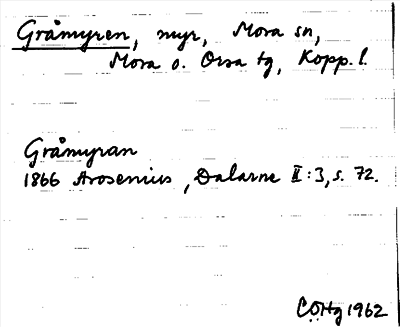 Gråmyren, myr, Mora sn,
Mora o. Orsa tg, Kopp. l.
Gråmyran
1866 Arosenius, Dalarne II:3, s. 72.
CÖHg 1962